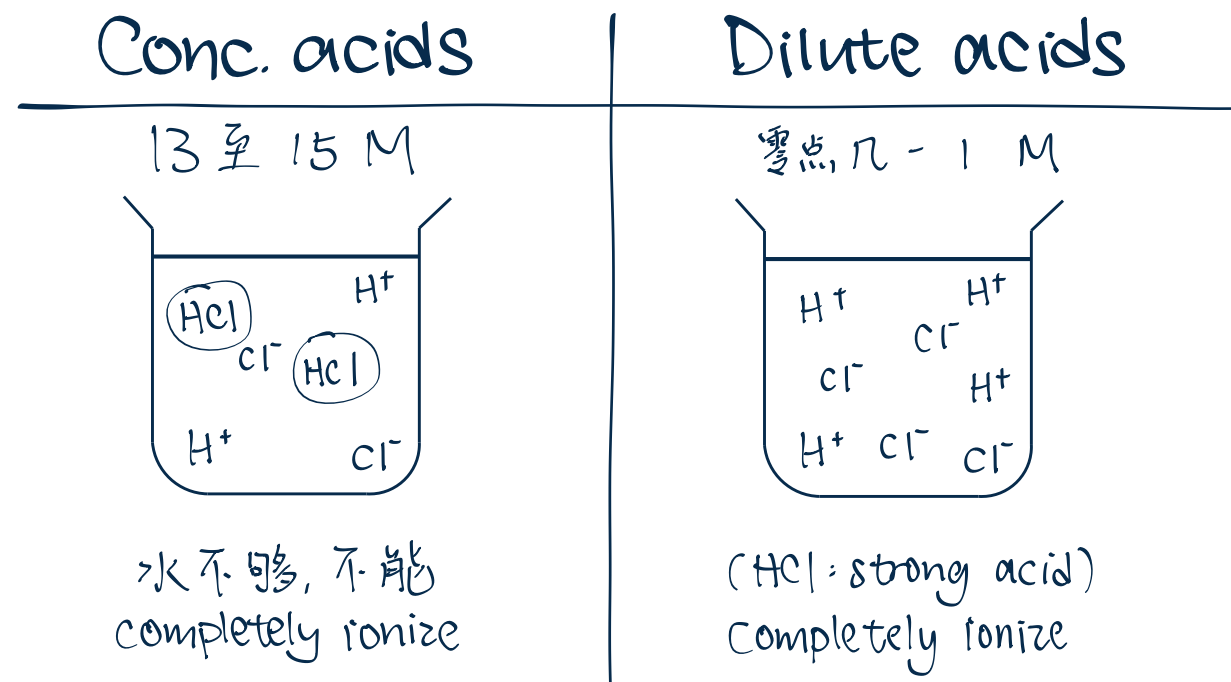 Conc. acids
13至15 M
HCl
H⁺
Cl⁻
HCl
H⁺
Cl⁻
水不够, 不能
completely ionize
Dilute acids
零点几 - 1 M
H⁺
H⁺
Cl⁻
Cl⁻
H⁺
H⁺
Cl⁻
Cl⁻
(HCl: strong acid)
completely ionize